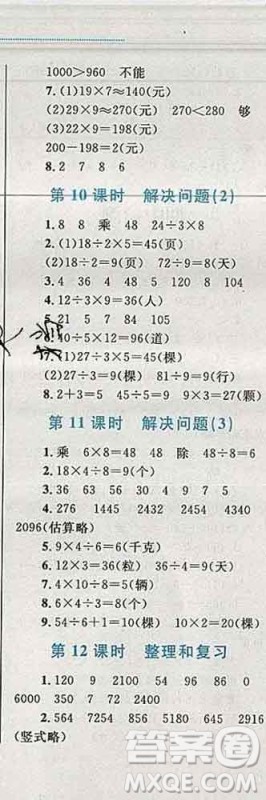 1000>960 不能
7.(1)19×7≈140(元)
(2)29×9≈270(元) 270<280 够
(3)22×9=198(元)
200-198=2(元)
8.2 7 8 6
第10课时 解决问题(2)
1.8 8 乘 48 24÷3×8
2.(1)18÷2×5=45(页)
(2)18÷2=9(页) 72÷9=8(天)
3.4 4 48 45 120 8 104
4.12÷3×9=36(人)
5.21 5 7 84 105
6.40÷5×12=96(道)
7.(1)27÷3×5=45(棵)
(2)27÷3=9(棵) 81÷9=9(行)
8.2+3=5 45÷5=9 9×3=27(颗)
第11课时 解决问题(3)
1.乘 6×8=48 48 除 48÷8=6
2.18×4÷8=9(个)
3.36 63 56 30 4 9 7 5
4.276 1445 2432 2454 4340
2096(估算略)
5.9×4÷6=6(千克)
6.12×3=36(粒) 36÷4=9(天)
7.10×4÷8=5(辆)
8.6×4÷3=8(个)
9.54÷6+1=10(棵) 10×2=20(棵)
第12课时 整理和复习
1.120 9 2100 54 96 86 0
6000 350 7 72 2400
2.564 7254 895 5168 645 2916
(竖式略)
作业帮
MXQE.COM